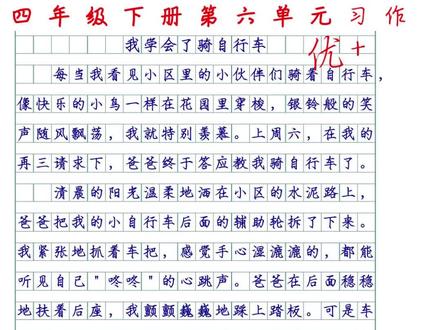 四年级下册第六单元习作
我学会了骑自行车
优+
每当我看见小区里的小伙伴们骑着自行车，
像快乐的小鸟一样在花园里穿梭，银铃般的笑
声随风飘荡，我就特别羡慕。上周六，在我的
再三请求下，爸爸终于答应教我骑自行车了。
清晨的阳光温柔地洒在小区的水泥路上，
爸爸把我的小自行车后面的辅助轮拆了下来。
我紧张地抓着车把，感觉手心湿漉漉的，都能
听见自己"咚咚"的心跳声。爸爸在后面稳稳
地扶着后座，我颤颤巍巍地踩上踏板。可是车